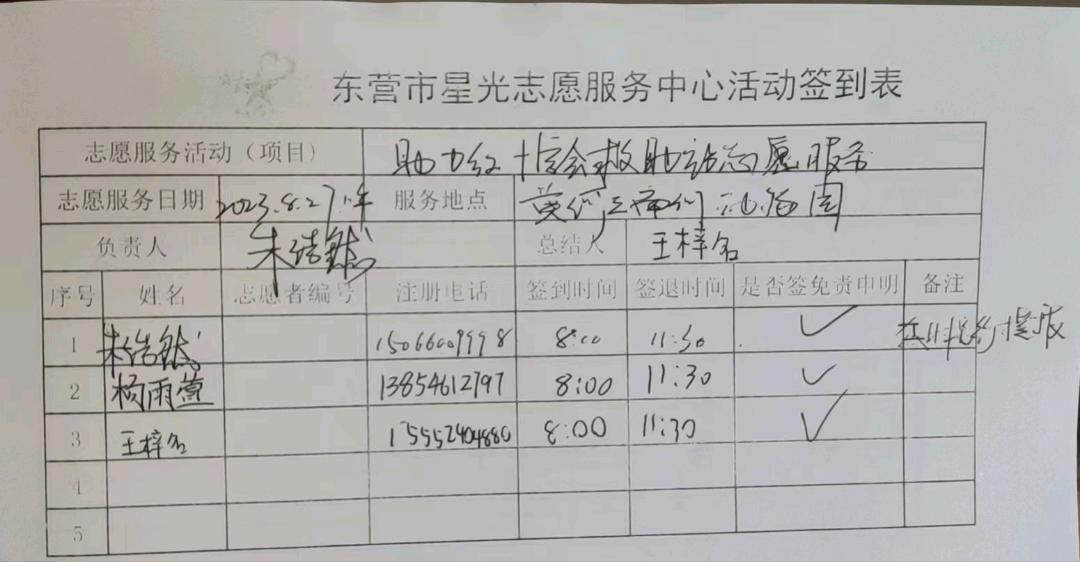 东营市星光志愿服务中心活动签到表
志愿服务活动（项目） 助力红十字会救助站志愿服务
志愿服务日期 2023.8.27 服务地点
负责人 朱浩然 总结人 王梓名
序号 姓名 志愿者编号 注册电话 签到时间 签退时间 是否签免责申明 备注
1 朱浩然 15066009998 8:00 11:30 ✓
2 杨雨萱 13854612797 8:00 11:30 ✓
3 王梓名 15552404880 8:00 11:30 ✓
4
5